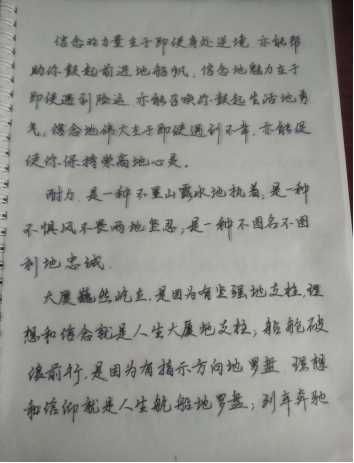 信念的力量在于即使身处逆境，亦能帮
助你鼓起前进地船帆，信念地魅力在于
即使遇到险运，亦能召唤你鼓起生活地勇
气，信念地伟大在于即使遇到不幸，亦能促
使你保持崇高地心灵。
耐力，是一种不显山露水地执着，是一种
不惧风不畏雨地坚忍；是一种不图名不图
利地忠诚.
大厦巍然屹立，是因为有坚强地支柱，理
想和信念就是人生大厦地支柱；船舶破
浪前行，是因为有指示方向地罗盘 理想
和信仰就是人生航船地罗盘；列车奔驰